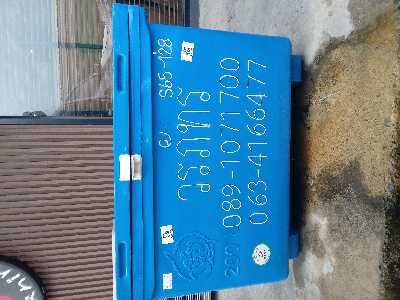 S65-128
วรภัทร
200
089-1071700
063-4166477